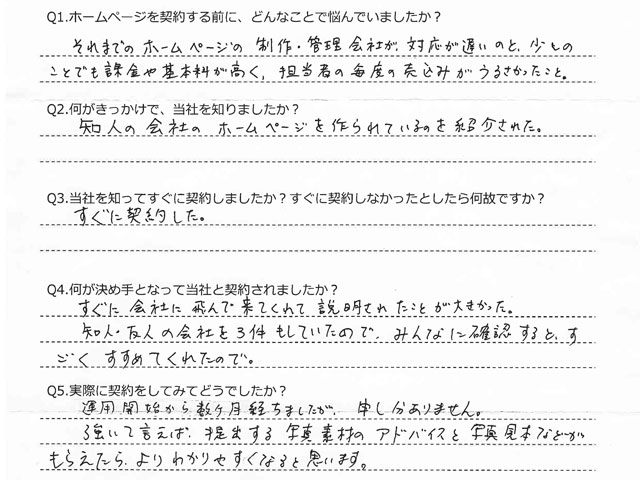 Q1.ホームページを契約する前に、どんなことで悩んでいましたか？
それまでのホームページの制作・管理会社が、対応が遅いのと、少しの
ことでも課金や基本料が高く、担当者の毎度の売込みがうるさかったこと。
Q2.何がきっかけで、当社を知りましたか？
知人の会社のホームページを作られているのを紹介された。
Q3.当社を知ってすぐに契約しましたか？すぐに契約しなかったとしたら何故ですか？
すぐに契約した。
Q4.何が決め手となって当社と契約されましたか？
すぐに会社に飛んで来てくれて説明されたことが大きかった。
知人・友人の会社を3件もしていたので、みんなに確認すると、す
ごくすすめてくれたので。
Q5.実際に契約をしてみてどうでしたか？
運用開始から数ヶ月経ちましたが、申し分ありません。
強いて言えば、提出する写真素材のアドバイスと写真見本などが
もらえたら、よりわかりやすくなると思います。